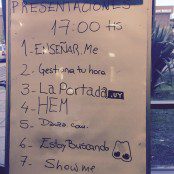 PRESENTACIONES
17:00 HS
1-ENSEÑAR.Me
2- Gestiona tu hora
3- La Portada.UY
4- HEM
6- Estoy Buscando
7- Show me